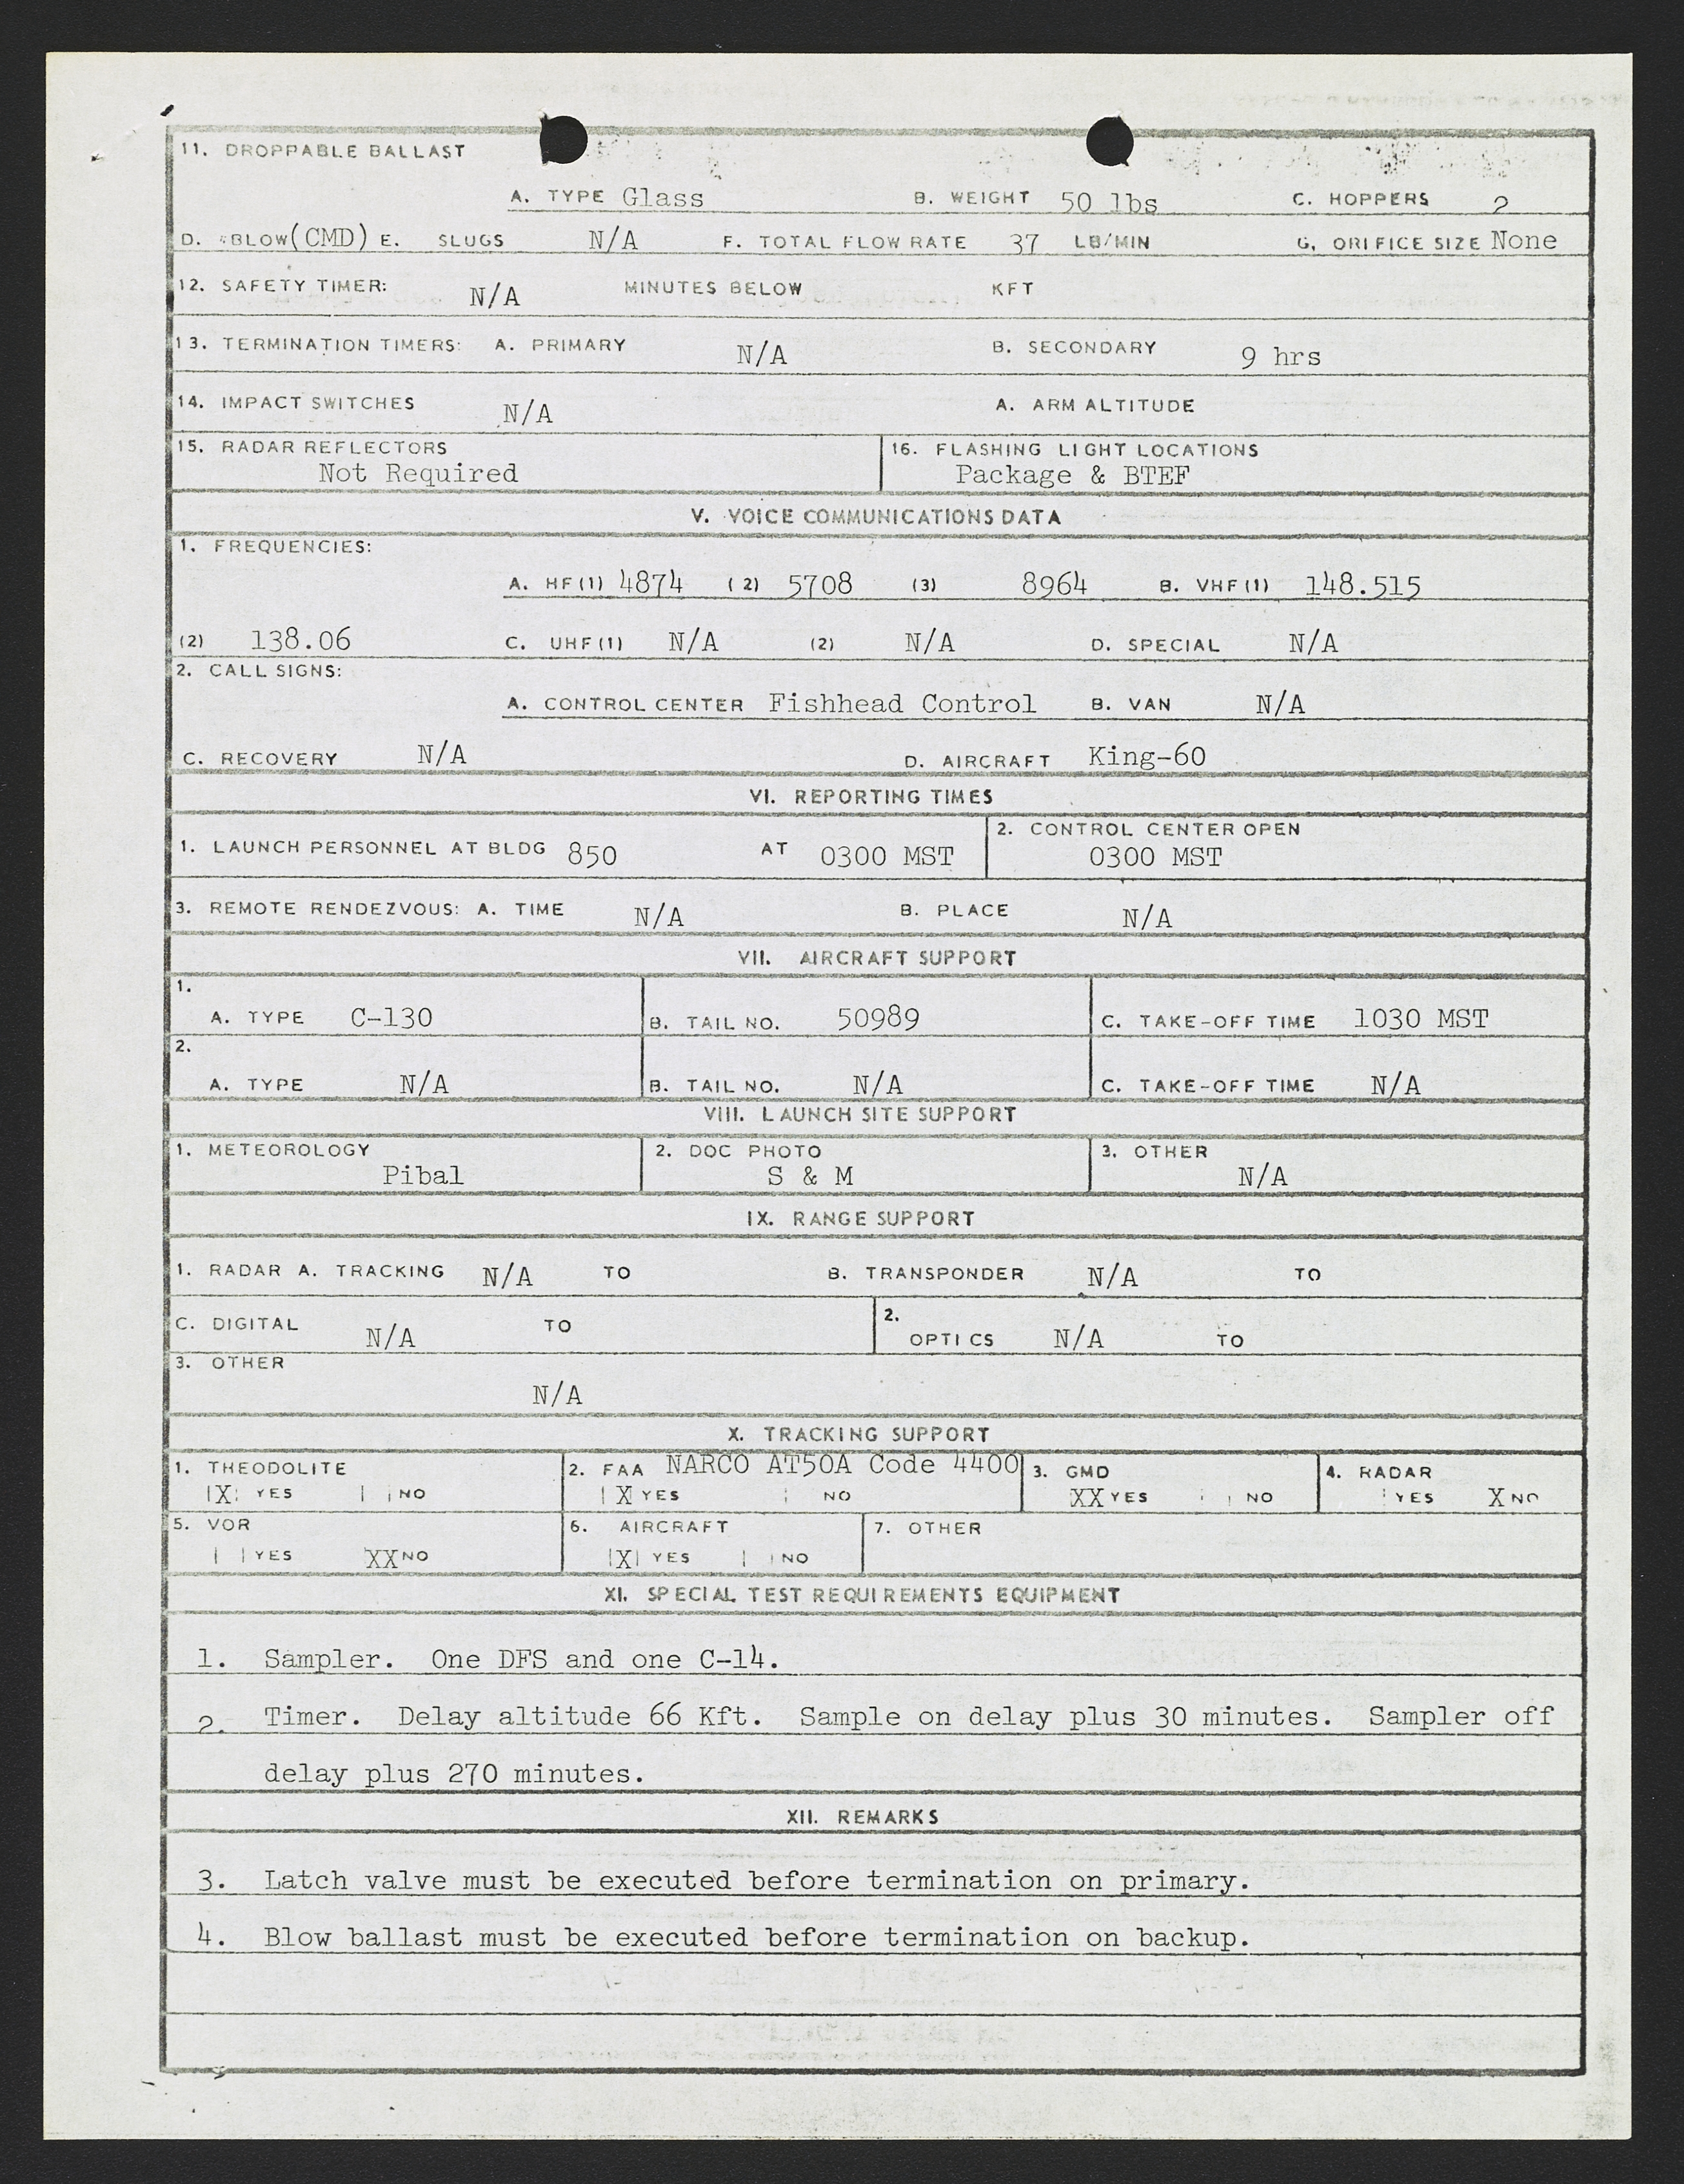 11. DROPPABLE BALLAST
A. TYPE Glass B. WEIGHT 50 lbs C. HOPPERS 2
D. BLOW(CMD) E. SLUGS N/A F. TOTAL FLOW RATE 37 LB/MIN G. ORIFICE SIZE None
12. SAFETY TIMER: N/A MINUTES BELOW KFT
13. TERMINATION TIMERS: A. PRIMARY N/A B. SECONDARY 9 hrs
14. IMPACT SWITCHES N/A A. ARM ALTITUDE
15. RADAR REFLECTORS 16. FLASHING LIGHT LOCATIONS
Not Required Package & BTEF
V. VOICE COMMUNICATIONS DATA
1. FREQUENCIES:
A. HF(1) 4874 (2) 5708 (3) 8964 B. VHF(1) 148.515
(2) 138.06 C. UHF(1) N/A (2) N/A D. SPECIAL N/A
2. CALL SIGNS:
A. CONTROL CENTER Fishhead Control B. VAN N/A
C. RECOVERY N/A D. AIRCRAFT King-60
VI. REPORTING TIMES
1. LAUNCH PERSONNEL AT BLDG 850 AT 0300 MST 2. CONTROL CENTER OPEN
0300 MST
3. REMOTE RENDEZVOUS: A. TIME N/A B. PLACE N/A
VII. AIRCRAFT SUPPORT
1.
A. TYPE C-130 B. TAIL NO. 50989 C. TAKE-OFF TIME 1030 MST
2.
A. TYPE N/A B. TAIL NO. N/A C. TAKE-OFF TIME N/A
VIII. LAUNCH SITE SUPPORT
1. METEOROLOGY 2. DOC PHOTO 3. OTHER
Pibal S & M N/A
IX. RANGE SUPPORT
1. RADAR A. TRACKING N/A TO B. TRANSPONDER N/A TO
C. DIGITAL N/A TO 2. OPTICS N/A TO
3. OTHER
N/A
X. TRACKING SUPPORT
1. THEODOLITE 2. FAA NARCO AT50A Code 4400 3. GMD 4. RADAR
X YES NO X YES NO XX YES NO YES X NO
5. VOR 6. AIRCRAFT 7. OTHER
YES XX NO X YES NO
XI. SPECIAL TEST REQUIREMENTS EQUIPMENT
1. Sampler. One DFS and one C-14.
2. Timer. Delay altitude 66 Kft. Sample on delay plus 30 minutes. Sampler off
delay plus 270 minutes.
XII. REMARKS
3. Latch valve must be executed before termination on primary.
4. Blow ballast must be executed before termination on backup.